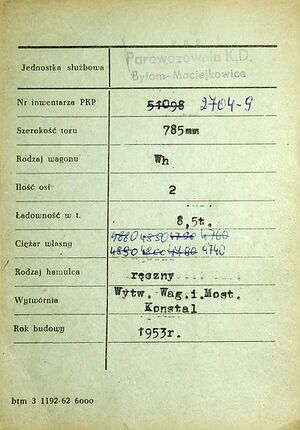 Jednostka służbowa
Parowozownia K.D.
Bytom-Maciejkowice
Nr inwentarza PKP 51098 2704-9
Szerokość toru 785mm
Rodzaj wagonu Wh
Ilość osi 2
Ładowność w t. 8,5t.
Ciężar własny 4880 4850 4790 4760
4890 4800 4780 4740
Rodzaj hamulca ręczny
Wytwórnia Wytw. Wag.i.Most.
Konstal
Rok budowy 1953r.
btm 3 1192-62 6000